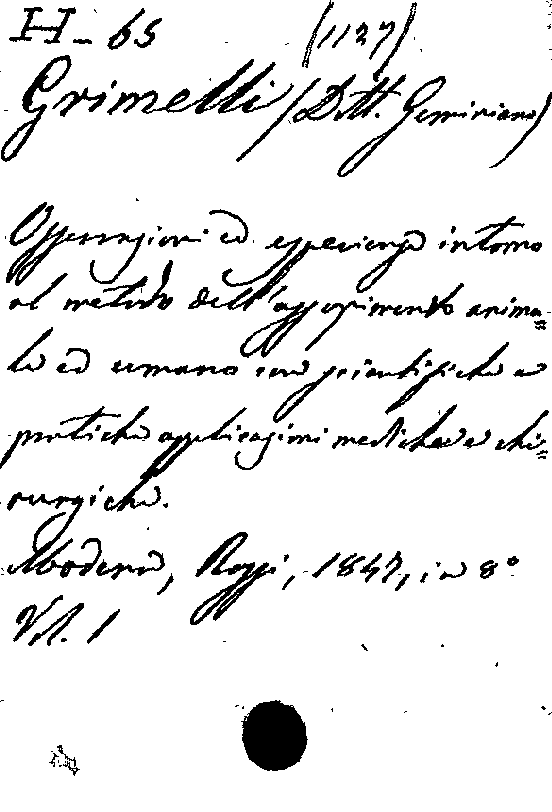 H - 65 (1127)
Grimelli (Dott. Geminiano)
Osservazioni ed esperienze intorno
al metodo dell'assopimento anima=
le ed umano con scientifiche e
pratiche applicazioni mediche e chi=
rurgiche.
Modena, Rossi, 1847, in 8°
Vol. 1